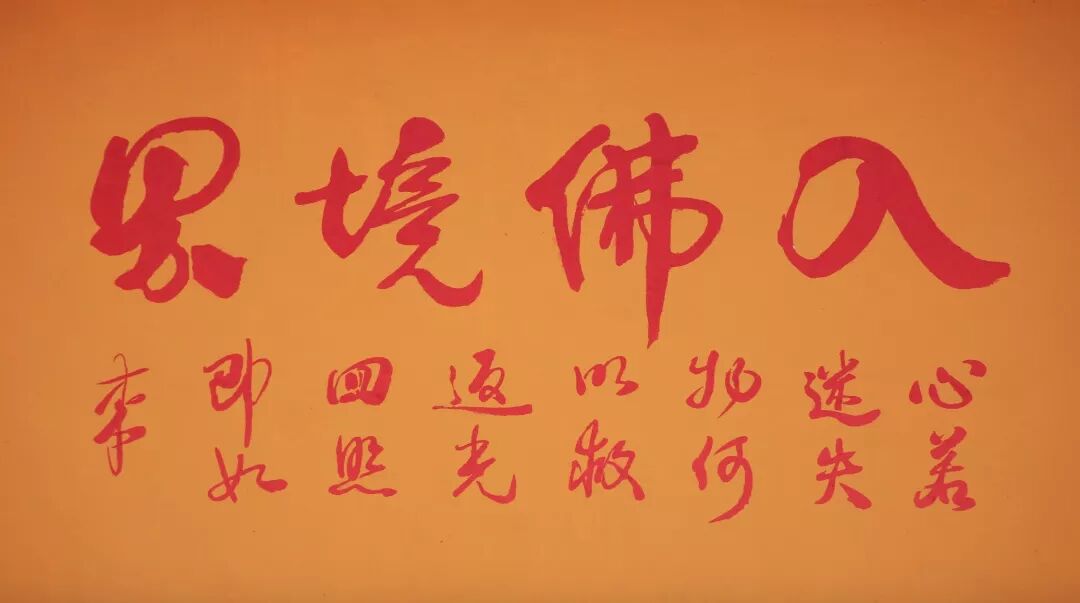 入佛境界
心若
迷失
物何
以救
返光
回照
即如
來